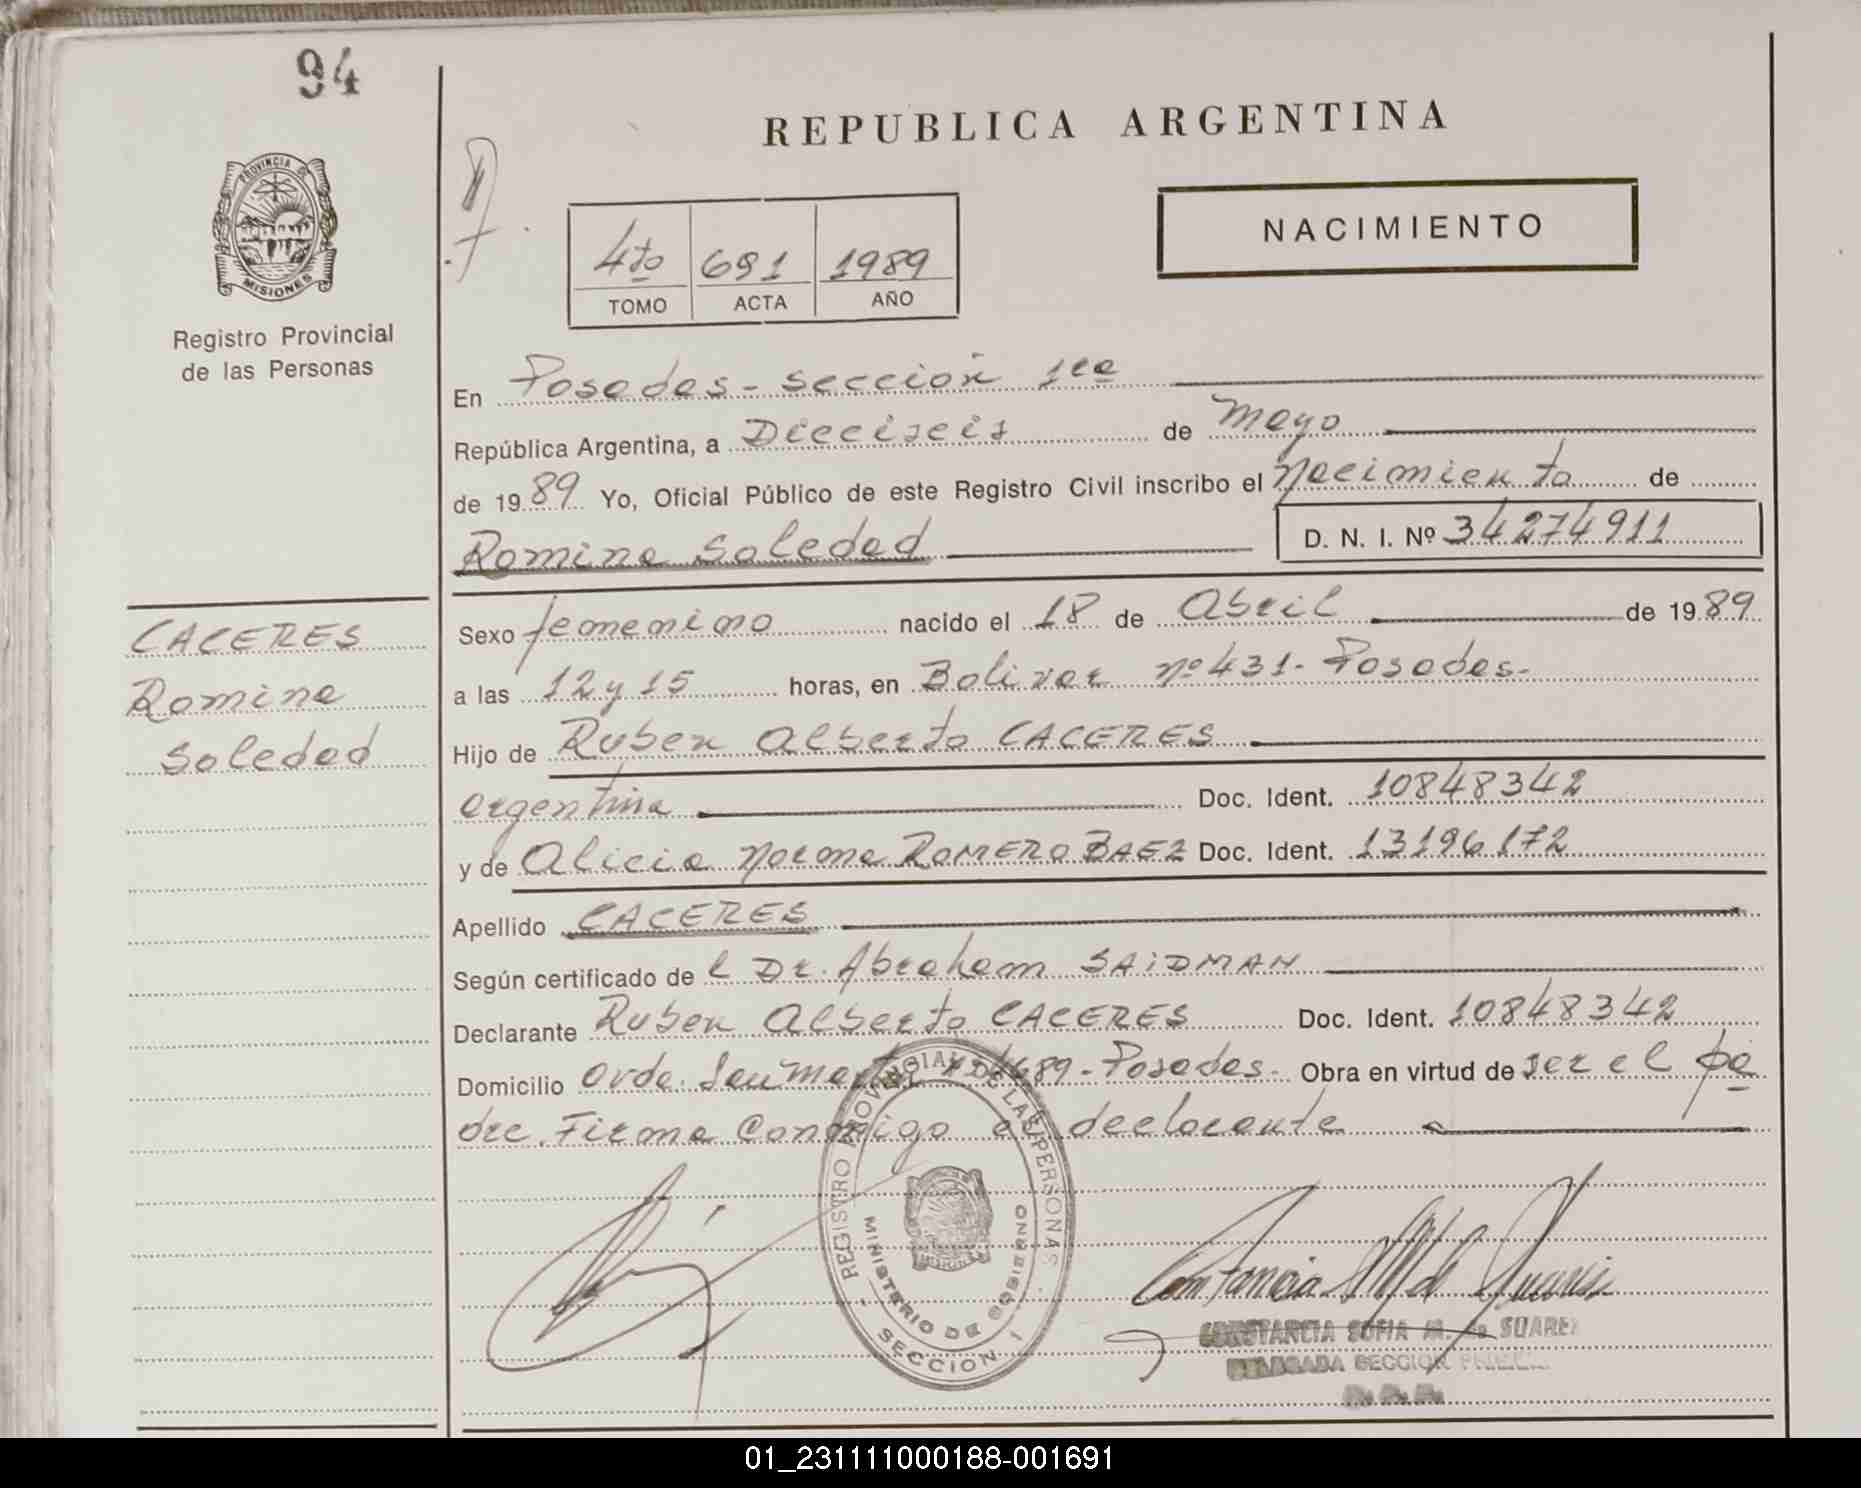 94
REPUBLICA ARGENTINA
PROVINCIA DE
MISIONES
Registro Provincial
de las Personas
NACIMIENTO
4to 691 1989
TOMO ACTA AÑO
En Posadas - sección 1ra
República Argentina, a Dieciseis de Mayo
de 1989 Yo, Oficial Público de este Registro Civil inscribo el Nacimiento de
Romina Soledad D. N. I. Nº 34274911
CACERES
Romina
Soledad
Sexo femenino nacido el 18 de Abril de 1989
a las 12 y 15 horas, en Bolivar nº 431 - Posadas -
Hijo de Ruben Alberto CACERES
argentina Doc. Ident. 10848342
y de Alicia Norma ROMERO BAEZ Doc. Ident. 13196172
Apellido CACERES
Según certificado de l Dr. Abraham SAIDMAN
Declarante Ruben Alberto CACERES Doc. Ident. 10848342
Domicilio Avda. San Martin 689 - Posadas - Obra en virtud de ser el pa
dre. Firma Conmigo el declarante
REGISTRO PROVINCIAL DE LAS PERSONAS
MINISTERIO DE GOBIERNO
SECCION 1
CONSTANCIA SOFIA M. de SUAREZ
DELEGADA SECCION
01_231111000188-001691